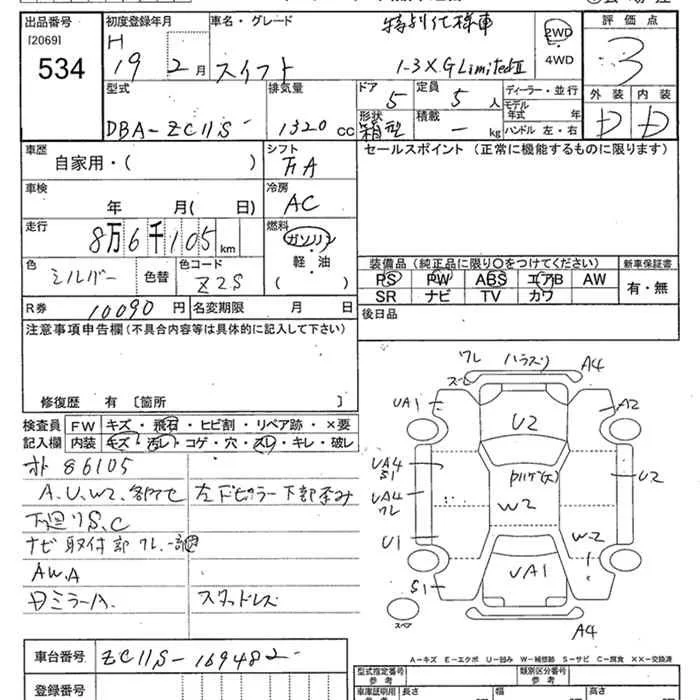 出品番号 初度登録年月 車名・グレード 特別仕様車 2WD 評価点
[2069] H 4WD 3
534 19 2月 スイフト 1-3 XG LimitedⅡ
型式 排気量 ドア 定員 ディーラー・並行 外装 内装
DBA-ZC11S 1320cc 5 5人 モデル年式 年 D D
形状 積載 ハンドル 左・右
箱型 - kg
車歴 シフト セールスポイント (正常に機能するものに限ります)
自家用・( ) FA
車検 冷房
年 月( 日) AC
走行 燃料
8万6千105km ガソリン
軽・油
( )
色 色替 色コード
シルバー Z2S
装備品(純正品に限り○をつけてください) 新車保証書
PS PW ABS エアB AW 有・無
SR ナビ TV カワ
R券 10090円 名変期限 月 日 後日品
注意事項申告欄(不具合内容等は具体的に記入して下さい)
修復歴 有 [箇所 ]
検査員 FW キズ・飛石・ヒビ割・リペア跡・×要
記入欄 内装 キズ・汚レ・コゲ・穴・スレ・キレ・破レ
86105
A、U、W2、 左 ピラー下部歪み
下廻りS、C
ナビ取付部ワレ
AW、A
ミラーA スタッドレス
ワレ ハラズリ A4
UA1 A2
U2
UA4
S1
U2
UA4
ワレ
W2
W2
U1
UA1
S1
スペア
A4
車台番号 ZC11S-169482
登録番号
A-キズ E-エクボ U-凹み W-補修跡 S-サビ C-腐食 ××-交換済
型式指定番号 類別区分番号
参考 参考
車庫証明用 長さ 幅 高さ
参考